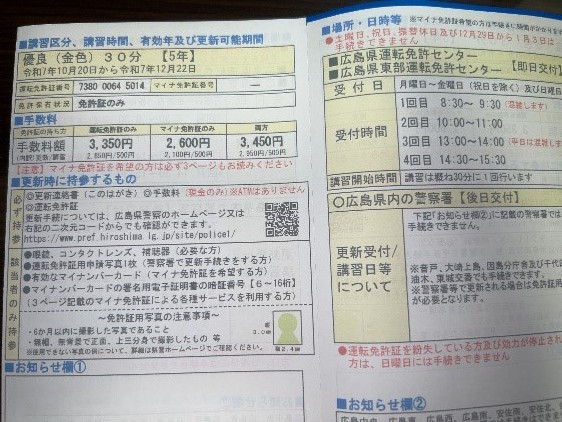 ■講習区分、講習時間、有効年及び更新可能期間
優良（金色）３０分 【5年】
令和7年10月20日から令和7年12月22日
運転免許証番号 7380 0064 5014 マイナ免許証番号 ―
免許保有状況 免許証のみ
■手数料
免許証の持ち方 運転免許証のみ マイナ免許証のみ 両方
手数料額 3,350円 2,600円 3,450円
(内訳)更新/講習 2,850円/500円 2,100円/500円 2,950円/500円
【注意】マイナ免許証を希望の方は必ず3ページもお読みください
■更新時に持参するもの
必ず持参
◎更新連絡書（このはがき）◎手数料（現金のみ）※ATMはありません
◎運転免許証
更新手続については、広島県警察のホームページ又は
右の二次元コードからでも確認できます。
https://www.pref.hiroshima.lg.jp/site/police1/
該当者のみ持参
●眼鏡、コンタクトレンズ、補聴器（必要な方）
●運転免許用申請写真1枚（警察署で更新手続きをする方）
●有効なマイナンバーカード（マイナ免許証を希望する方）
●マイナンバーカードの署名用電子証明書の暗証番号【6～16桁】
（3ページ記載のマイナ免許証による各種サービスを利用する方）
～免許証用写真の注意事項～
・6か月以内に撮影した写真であること
・無帽、無背景で正面、上三分身で撮影したもの 等
※使用できない写真の例について、詳細は県警ホームページでご確認ください。
縦
3.0㎝
横2.4㎝
■お知らせ欄①
■場所・日時等
※マイナ免許証希望の方は手続きに時間がかかりま
●土曜日、祝日、振替休日及び12月29日から1月3日は
手続きできません
■広島県運転免許センター
■広島県東部運転免許センター
【即日交付】
受付日 月曜日～金曜日（祝日を除く）及び日曜日
受付時間
1回目 8:30～ 9:30（混雑します）
2回目 10:00～11:00
3回目 13:00～14:00（平日は混雑しま
4回目 14:30～15:30
講習開始時間 講習は概ね30分に1回行います
〇広島県内の警察署【後日交付】
更新受付/
講習日等
について
下記「お知らせ欄②」に記載の警察署では
手続きできません。
※音戸、大崎上島、因島分庁舎及び千代
油木、東城交番でも手続きできます。
※警察署等で更新される場合は免許証用
が必要となります。
●運転免許証を紛失している方及び効力が停止され
方は、日曜日には手続きできません
■お知らせ欄②